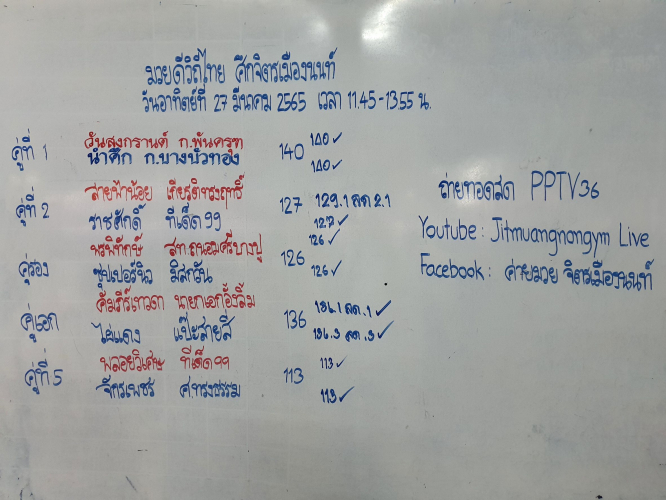 มวยดีวิถีไทย ศึกจิตรเมืองนนท์
วันอาทิตย์ที่ 27 มีนาคม 2565 เวลา 11.45-13.55 น.
คู่ที่ 1 วันสงกรานต์ ก.พันครุฑ 140 140 ✓
นำศึก ก.บางบัวทอง 140 ✓
คู่ที่ 2 สายฟ้าน้อย เกียรติทรงฤทธิ์ 127 129.1 ลด 2.1
ราชศักดิ์ ทีเด็ด99 127 ✓
คู่รอง พรพิทักษ์ สท.ถนอมศรีบางปู 126 126 ✓
ซุปเปอร์นิว มิสกวัน 126 ✓
คู่เอก คัมภีร์เทวดา นายกเอกอั้งลิ้ม 136 136.1 ลด .1 ✓
ไข่แดง แป๊ะสายสี่ 136.3 ลด .3 ✓
คู่ที่ 5 พลอยวิเศษ ทีเด็ด99 113 113 ✓
จักรเพชร ศ.ทรงธรรม 113 ✓
ถ่ายทอดสด PPTV36
Youtube : Jitmuangnongym Live
Facebook : ค่ายมวย จิตรเมืองนนท์